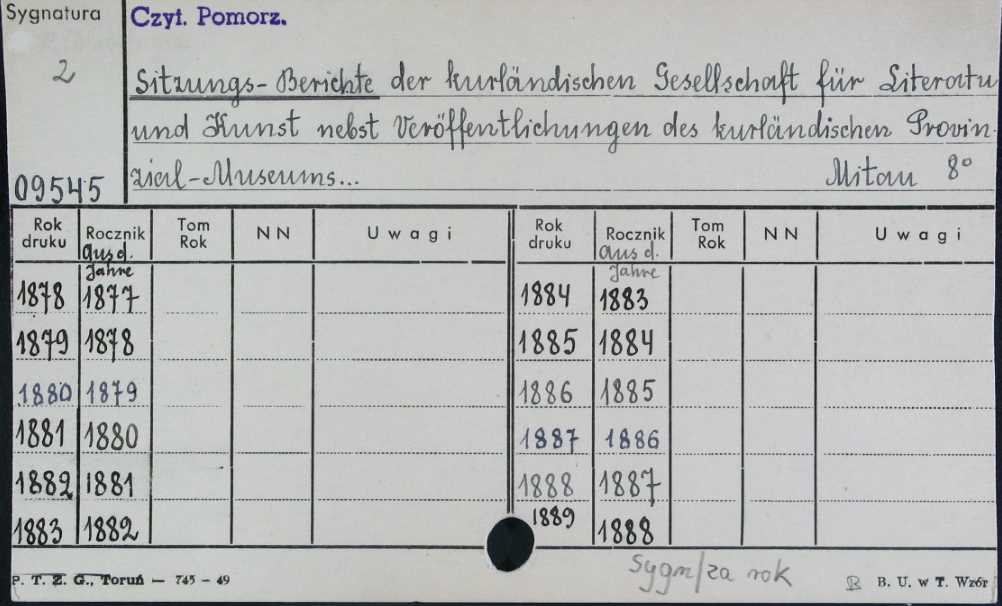 Sygnatura Czyt. Pomorz.
2
Sitzungs-Berichte der kurländischen Gesellschaft für Literatu
und Kunst nebst Veröffentlichungen des kurländischen Provin
zial-Museums... Mitau 8°
09545
Rok druku Rocznik Tom Rok NN Uwagi Rok druku Rocznik Tom Rok NN Uwagi
aus d. Jahre aus d. Jahre
1878 1877 1884 1883
1879 1878 1885 1884
1880 1879 1886 1885
1881 1880 1887 1886
1882 1881 1888 1887
1883 1882 1889 1888
sygn/za rok
P. T. Z. G., Toruń — 745 – 49 B. U. w T. Wzór